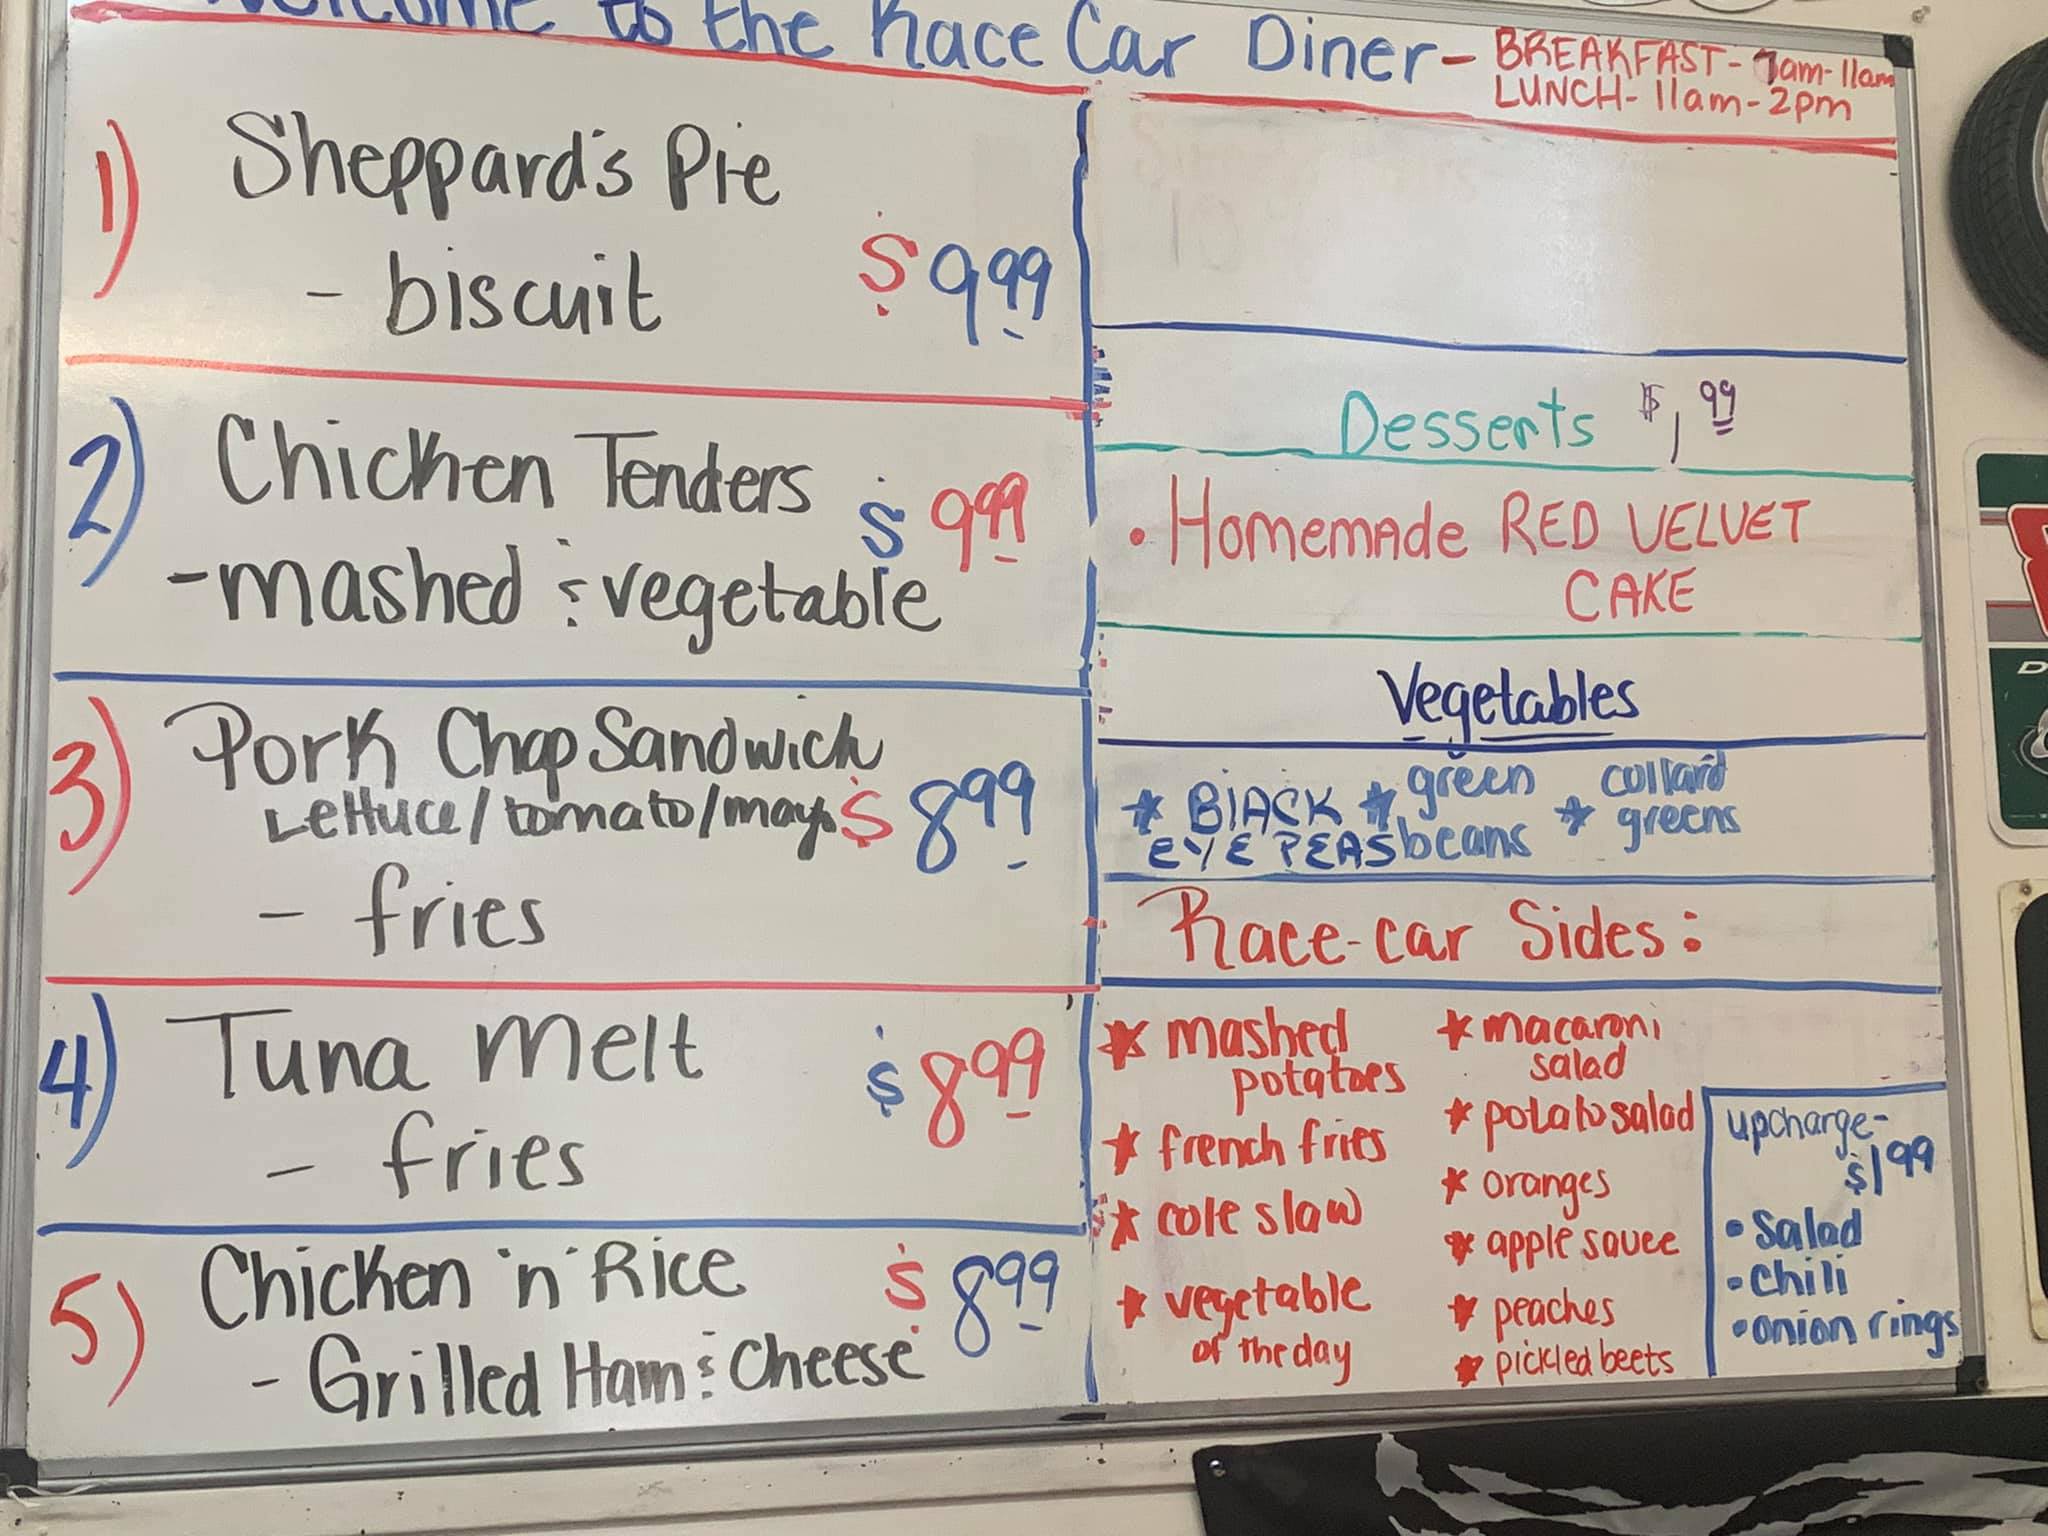 Welcome to the Race Car Diner-
BREAKFAST- 7am-11am
LUNCH- 11am-2pm
1) Sheppard's Pie
- biscuit $9.99
2) Chicken Tenders $9.99
-mashed & vegetable
3) Pork Chop Sandwich
Lettuce/tomato/mayo $8.99
- fries
4) Tuna melt $8.99
- fries
5) Chicken 'n' Rice $8.99
- Grilled Ham & Cheese
Desserts $1.99
• Homemade RED VELVET
CAKE
Vegetables
* BlACK * green * collard
EYE PEAS beans greens
Race-car Sides:
* mashed
potatoes
* french fries
* cole slaw
* vegetable
of the day
* macaroni
salad
* potato salad
* oranges
* apple sauce
* peaches
* pickled beets
upcharge-
$1.99
• Salad
• chili
• onion rings